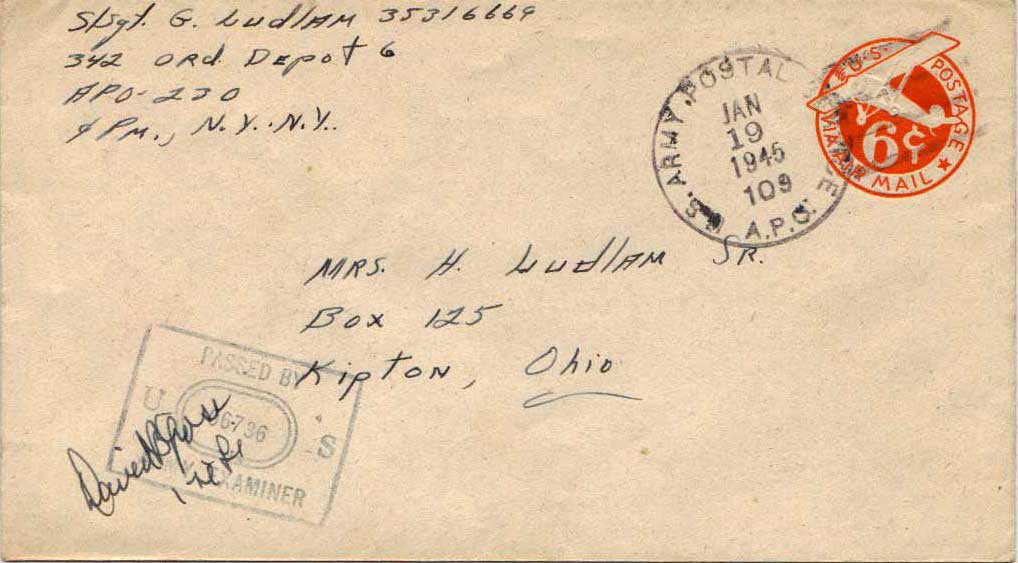 S/Sgt. G. Ludlam 35316669
342 Ord. Depot 6
APO-230
% Pm., N.Y..N.Y..
U.S. ARMY. POSTAL
JAN
19
1945
109
A.P.O.
U.S. POSTAGE
6¢
VIA AIR MAIL
Mrs. H. Ludlam Sr.
Box 125
Kipton, Ohio
PASSED BY
U S
36736
EXAMINER